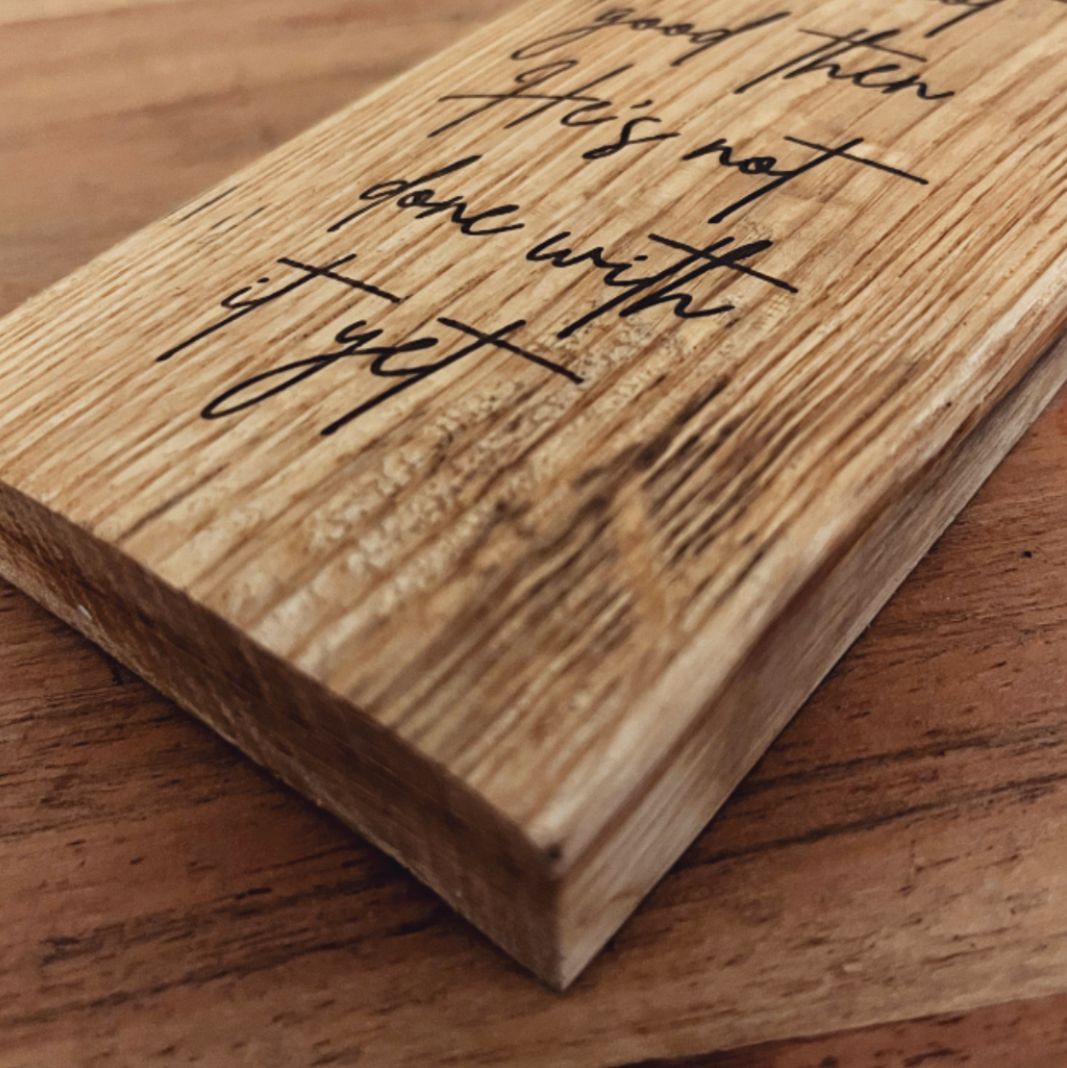 good then
He's not
done with
it yet